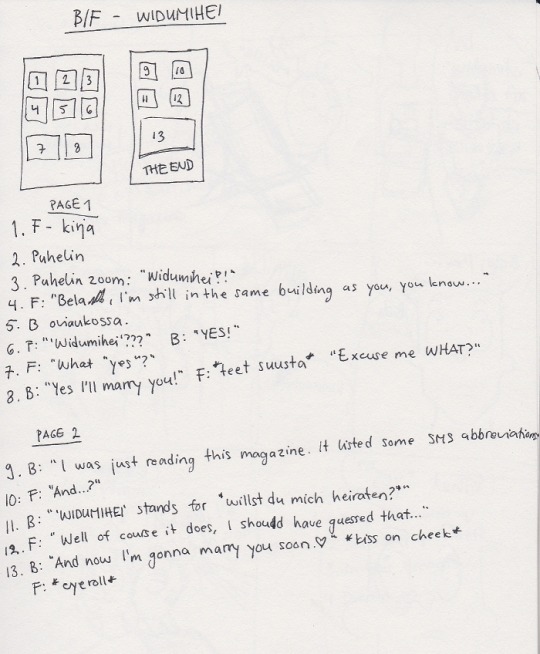 B/F - WIDUMIHEI
1 2 3
4 5 6
7 8
9 10
11 12
13
THE END
PAGE 1
1. F - kirja
2. Puhelin
3. Puhelin zoom: "Widumihei?!"
4. F: "Bela, I'm still in the same building as you, you know..."
5. B oviaukossa.
6. F: "'Widumihei'???" B: "YES!"
7. F: "What "yes"?"
8. B: "Yes I'll marry you!" F: *teet suusta* "Excuse me WHAT?"
PAGE 2
9. B: "I was just reading this magazine. It listed some SMS abbreviations
10: F: "And...?"
11. B: "'WIDUMIHEI' stands for *willst du mich heiraten?*"
12. F: "Well of course it does, I should have guessed that..."
13. B: "And now I'm gonna marry you soon.♡" *kiss on cheek*
F: *eyeroll*